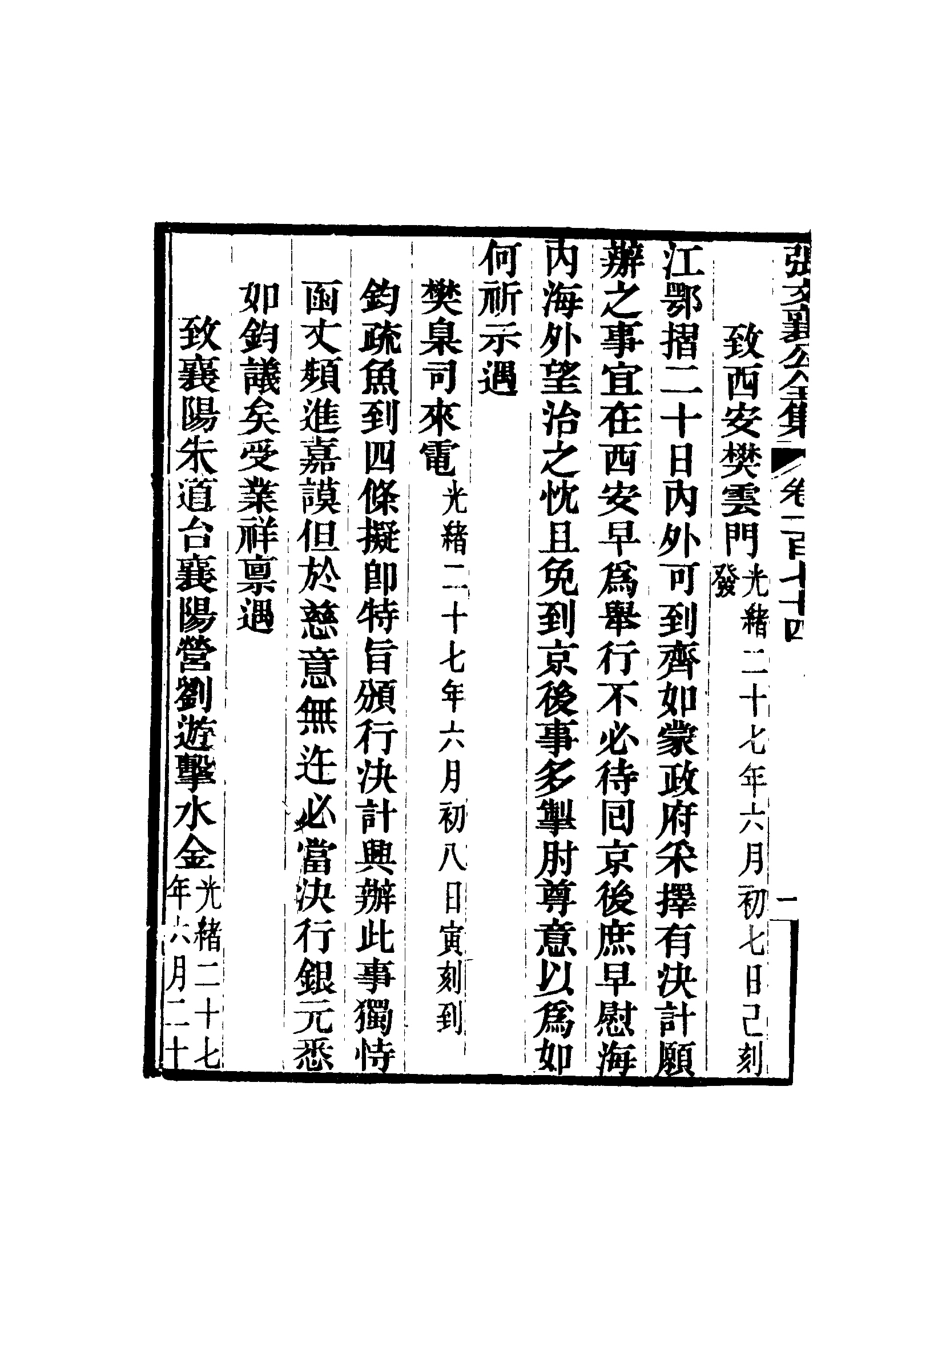 張文襄公全集 卷一百七十四 二
致西安樊雲門光緒二十七年六月初七日己刻發
江鄂摺二十日內外可到齊如蒙政府采擇有決計願
辦之事宜在西安早爲舉行不必待回京後庶早慰海
內海外望治之忱且免到京後事多掣肘尊意以爲如
何祈示遇
樊臬司來電光緒二十七年六月初八日寅刻到
鈞疏魚到四條擬卽特旨頒行決計興辦此事獨恃
函丈頻進嘉謨但於慈意無迕必當決行銀元悉
如鈞議矣受業祥禀遇
致襄陽朱道台襄陽營劉遊擊水金光緒二十七年六月二十